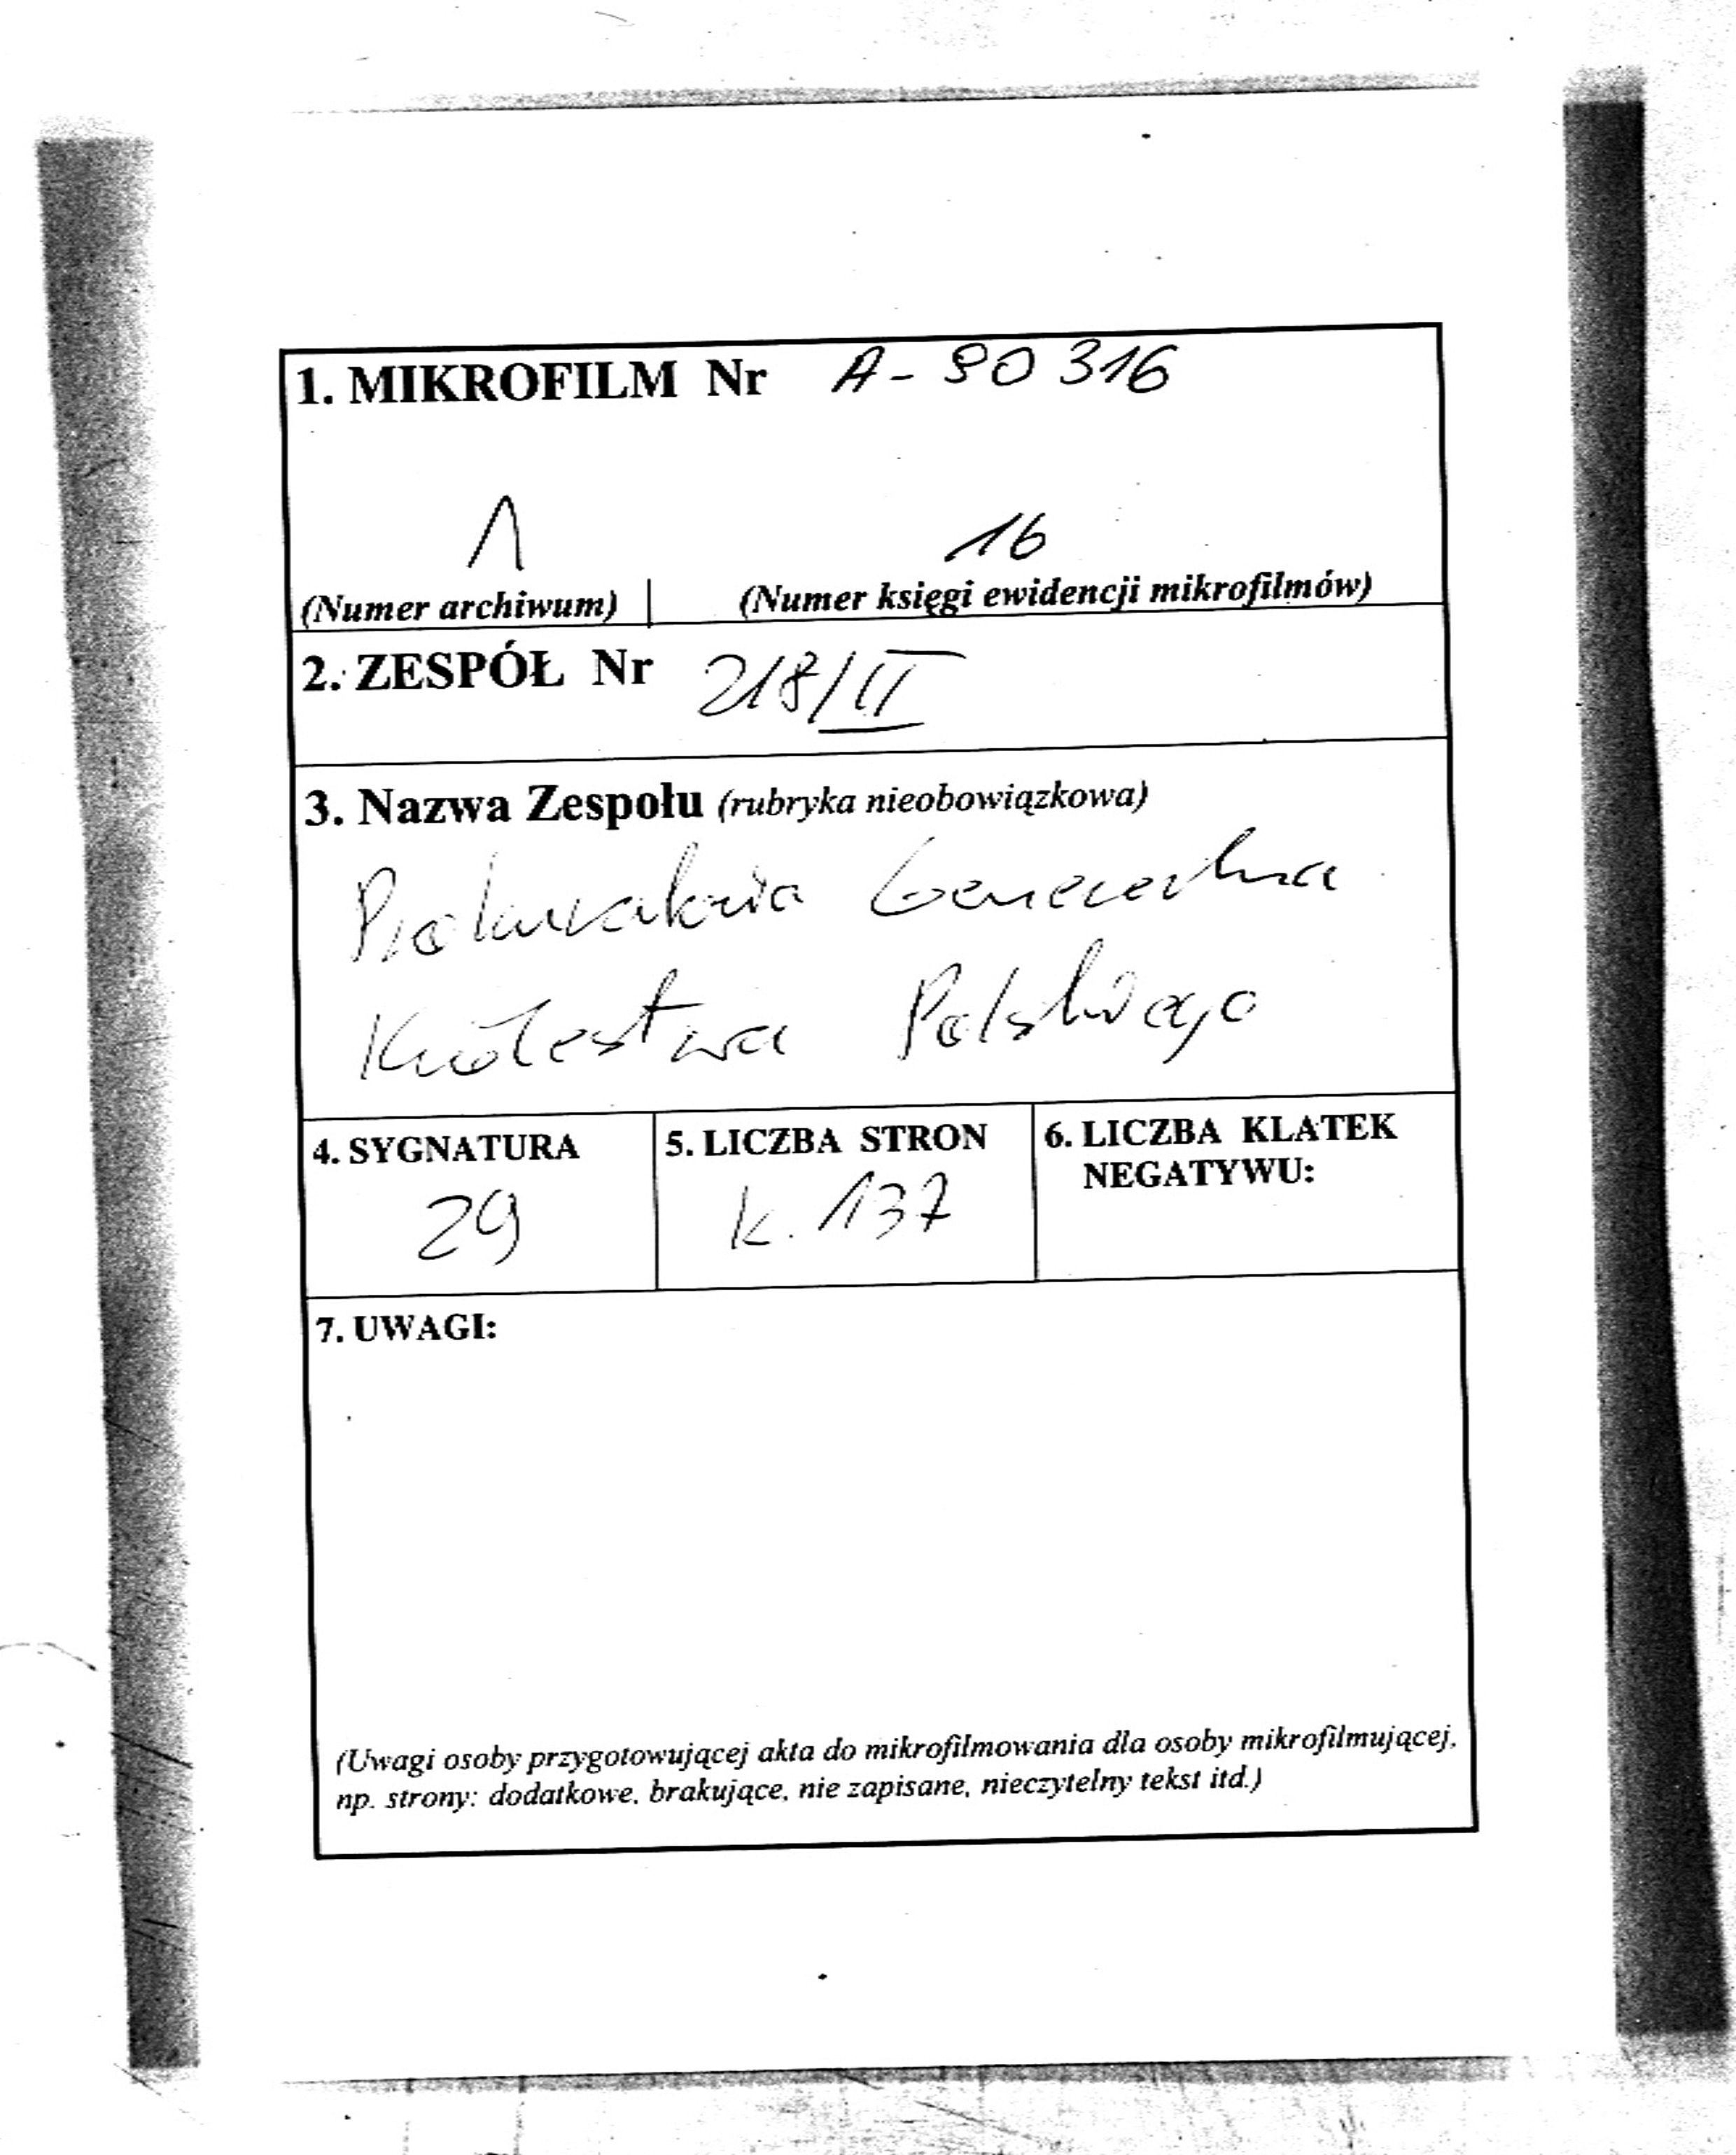 1. MIKROFILM Nr A - 90 316
1 16
(Numer archiwum) | (Numer księgi ewidencji mikrofilmów)
2. ZESPÓŁ Nr 218/II
3. Nazwa Zespołu (rubryka nieobowiązkowa)
Prokuratoria Generalna
Królestwa Polskiego
4. SYGNATURA 5. LICZBA STRON 6. LICZBA KLATEK
NEGATYWU:
29 k. 137
7. UWAGI:
(Uwagi osoby przygotowującej akta do mikrofilmowania dla osoby mikrofilmującej,
np. strony: dodatkowe, brakujące, nie zapisane, nieczytelny tekst itd.)